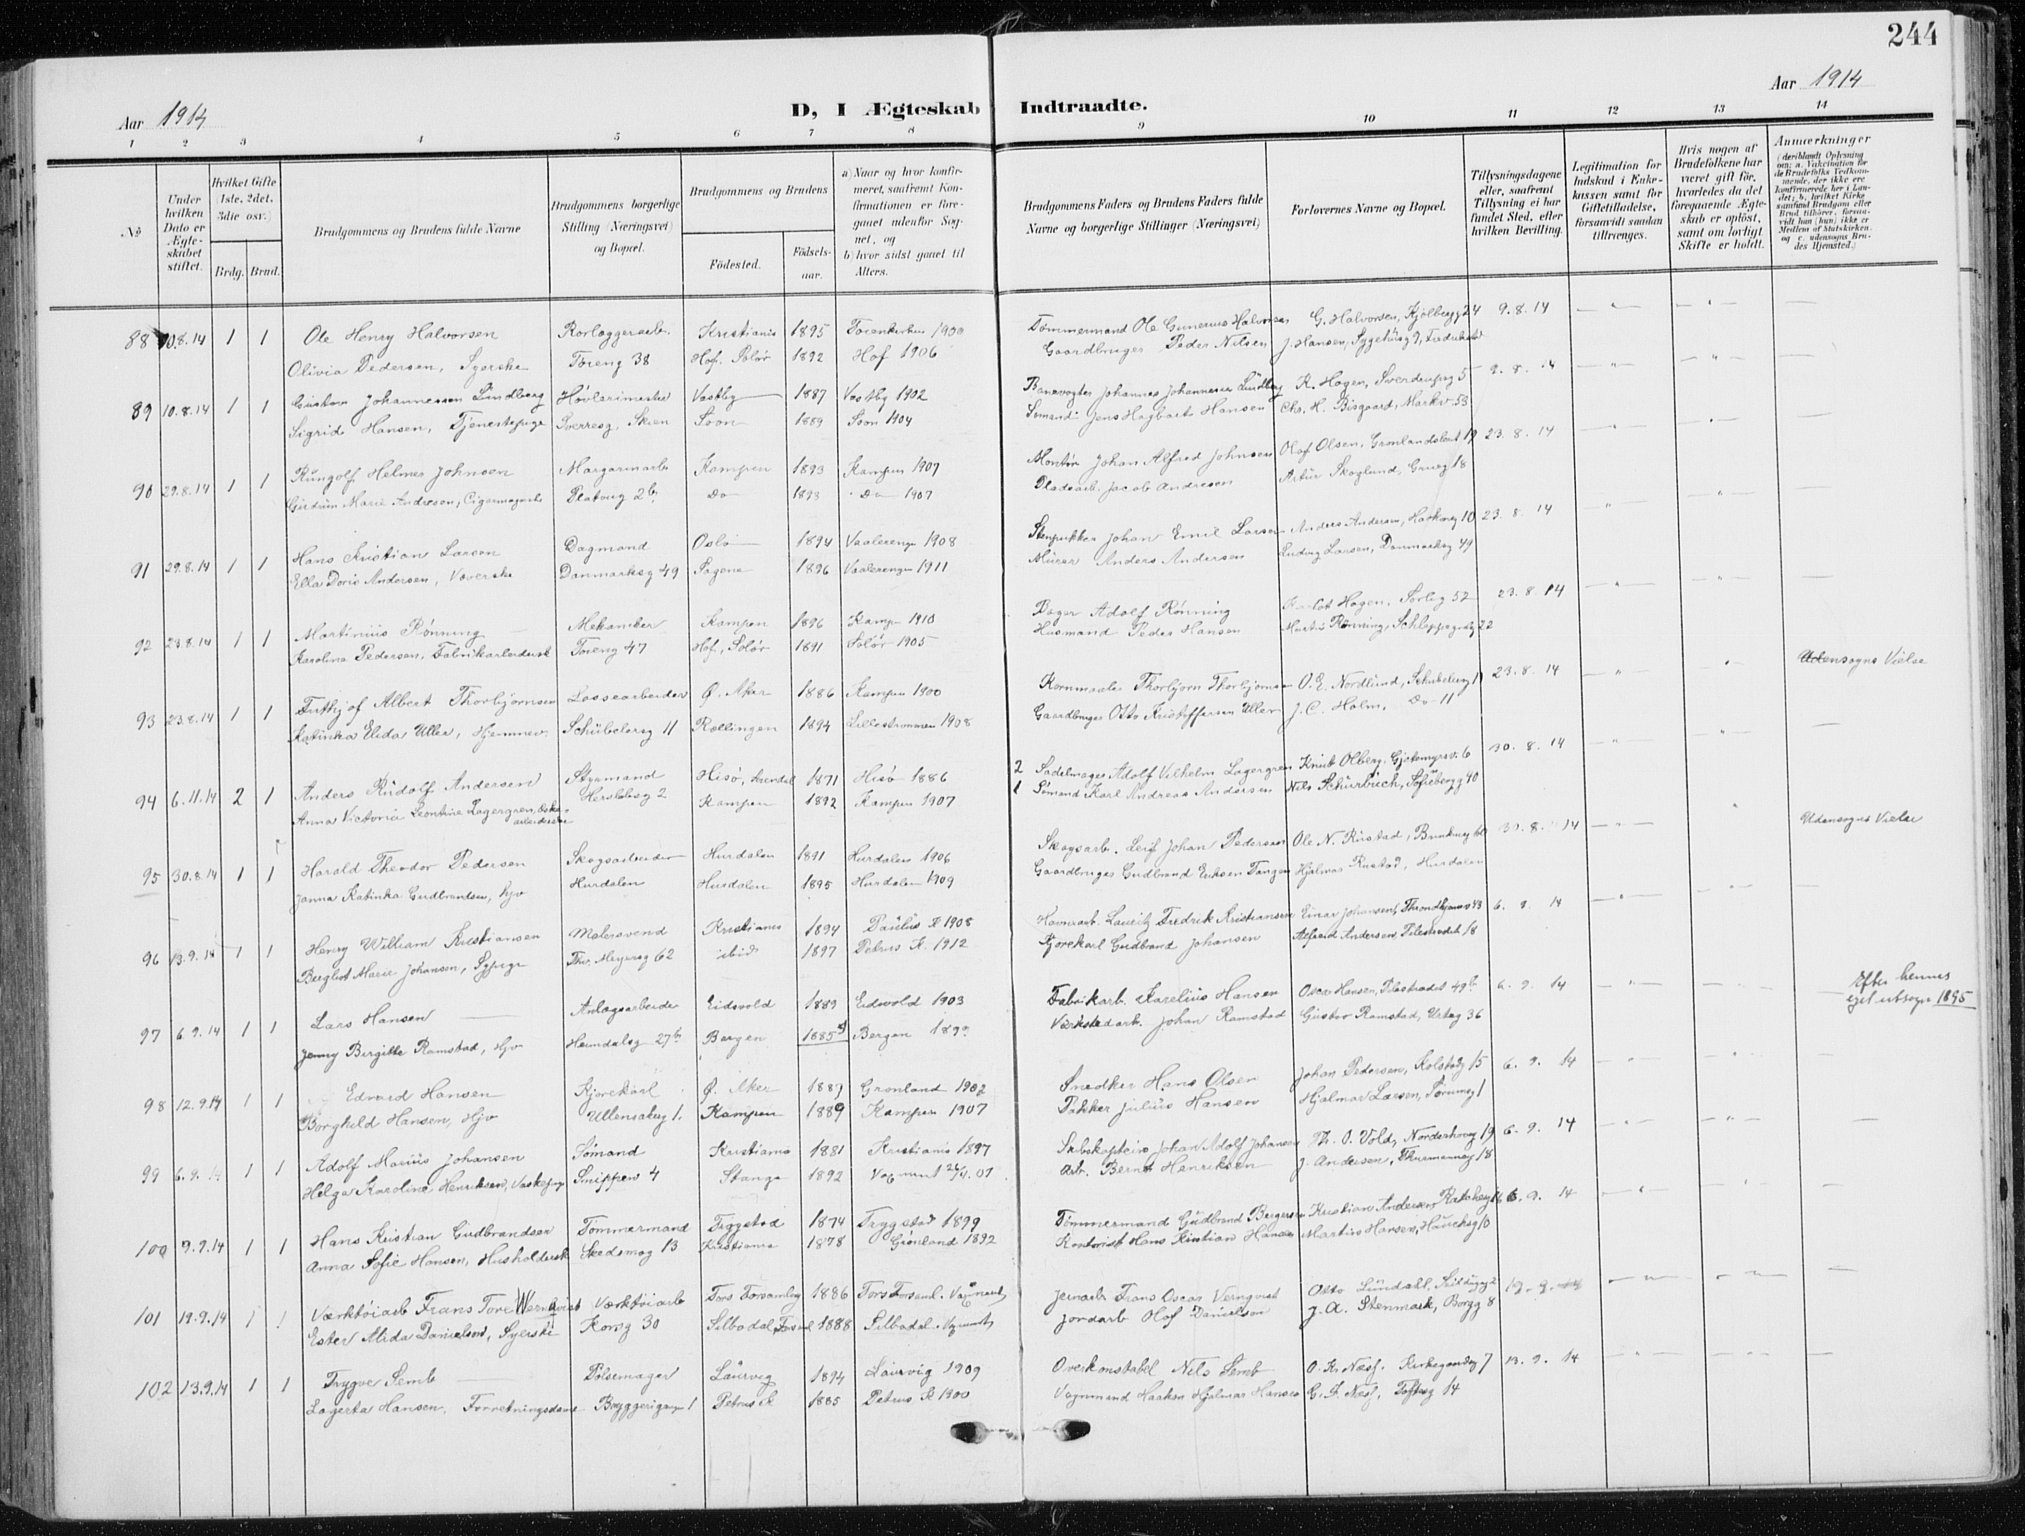 244
Aar 1914
D, I Ægteskab Indtraadte.
Aar 1914
1 2 3 4 5 6 7 8 9 10 11 12 13 14
No
Under hvilken Dato er Ægteskabet stiftet.
Hvilket Gifte (1ste, 2det, 3die osv.)
Brdg. Brud.
Brudgommens og Brudens fulde Navne
Brudgommens borgerlige Stilling (Næringsvei) og Bopæl.
Brudgommens og Brudens
Fødested. Fødselsaar.
a) Naar og hvor konfirmeret, saafremt Konfirmationen er foregaaet udenfor Sognet, og
b) hvor sidst gaaet til Alters.
Brudgommens Faders og Brudens Faders fulde Navne og borgerlige Stillinger (Næringsvei)
Forlovernes Navne og Bopæl.
Tillysningsdagene eller, saafremt Tillysning ei har fundet Sted, efter hvilken Bevilling.
Legitimation for Indskud i Enkekassen samt for Giftetilladelse, forsaavidt saadan tiltrænges.
Hvis nogen af Brudefolkene har været gift før, hvorledes da det foregaaende Ægteskab er opløst, samt om lovligt Skifte er holdt.
Anmærkninger (deriblandt Oplysning om: a. Vakcination for de Brudefolks Vedkommende, der ikke ere konfirmerede her i Landet; b. hvilket Kirkesamfund Brudgom eller Brud tilhører, forsaavidt han (hun) ikke er Medlem af Statskirken, og c. udensogns Brudes Hjemsted.)
88 10.8.14 1 1 Ole Henry Halvorsen Rørlæggerarb. Kristiania 1895 1900 Tømmermand Ole Gunerius Halvorsen G. Halvorsen, Kjølbergg 24 9.8.14
Olivia Pedersen, Syerske Tøieng 38 Hof, Solør 1892 Hof 1906 Gaardbruger Peder Nilsen J. Hansen, Sygehusg 9,
89 10.8.14 1 1 Gustav Johannessen Lindberg Høvlerimester Vestby 1887 Vestby 1902 Banevogter Johannes Johannessen Lindberg K. Hagen, Sverdrupsg 5 9.8.14
Sigrid Hansen, Tjenestepige Sverresg, Skien Soon 1889 Soon 1904 Sømand Jens Hagbart Hansen Chr. H. Bisgaard, Markv. 53
90 29.8.14 1 1 Rungolf Helmer Johnsen Margarinarb Kampen 1893 Kampen 1907 Montør Johan Alfred Johnsen Olaf Olsen, Grønlandsleret 19 23.8.14
Gudrun Marie Andresen, Cigarmagerske Platoug 2b Do 1893 Do 1907 Pladsarb. Jacob Andresen Artur Skoglund, Grueg 18
91 29.8.14 1 1 Hans Kristian Larsen Dagmand Oslo 1894 Vaalerenga 1908 Johan Emil Larsen Anders Andersen, 10 23.8.14
Ella Doris Andersen, Væverske Danmarksg 49 Sagene 1896 Vaalerengen 1911 Murer Anders Andersen Ludvig Larsen, Danmarksg 49
92 23.8.14 1 1 Martinius Rønning Mekaniker Kampen 1896 Kampen 1910 Bager Adolf Rønning Hagen, Sørlig 52 23.8.14
Karolina Pedersen, Fabrikarbeidersk Tøieng 47 Hof, Solør 1891 Solør 1905 Husmand Peder Hansen Martin Rønning, Schleppegrelsg 22
93 23.8.14 1 1 Frithjof Albert Thorbjørnsen Lossearbeider Ø. Aker 1886 Kampen 1900 Kornmaaler Thorbjørn Thorbjørnsen O. E. Nordlund, Schübelersg 11 23.8.14 Udensogns Vielse
Katinka Elida Uller, Hjemmev. Schübelersg 11 Rælingen 1894 Lillestrømmen 1908 Gaardbruger Otto Kristoffersen Uller J. C. Holm, Do 11
94 6.11.14 2 1 Anders Rudolf Andersen Styrmand Hisø, Arendal 1871 Hisø 1886 2 Sadelmager Adolf Vilhelm Lagergren Knut Olberg, Gjetemyrsv. 6 30.8.14
Anna Victoria Leontine Lagergren, Herslebsg 2 Kampen 1892 Kampen 1907 1 Sømand Karl Andreas Andersen Nils Schürbüch, Sofiebergg 40
95 30.8.14 1 1 Harald Theodor Pedersen Skogsarbeider Hurdalen 1891 Hurdalen 1906 Skogsarb. Leif Johan Pedersen Ole N. Rustad, 60 30.8.14 Udensogns Vielse
Janna Katinka Gudbrandsen, Hjv Hurdalen Hurdalen 1895 Hurdalen 1909 Gaardbruger Gudbrand Eriksen Tangen Hjalmar Rustad, Hurdalen
96 13.9.14 1 1 Henry William Kristiansen Malersvend Kristiania 1894 Paulus K 1908 Havnearb. Lauritz Fredrik Kristiansen Einar Johansen, Throndhjemsv 43 6.9.14
Bergliot Marie Johansen, Sypige Thv. Meyersg 62 ibid 1897 Petrus K. 1912 Kjørekarl Gudbrand Johansen Alfred Andersen, Pilestredet 18
97 6.9.14 1 1 Lars Hansen Anlægsarbeide Eidsvold 1889 Eidsvold 1903 Fabrikarb. Karelius Hansen Oscar Hansen, Pilestredet 49b 6.9.14 Efter hennes eget utsagn 1895
Jenny Birgitte Ramstad, Hjv Heimdalsg 27b Bergen 1885 Bergen Værkstedarb. Johan Ramstad Gustav Ramstad, Urteg 36
98 12.9.14 1 1 Edvard Hansen Kjørekarl Ø. Aker 1887 Grønland 1902 Snedker Hans Olsen Johan Pedersen, Kolstadg 15 6.9.14
Borghild Hansen, Hjv Ullensakerg 1. Kampen 1889 Kampen 1907 Pakker Julius Hansen Hjalmar Larsen, 1
99 6.9.14 1 1 Adolf Marius Johansen Sømand Kristiania 1881 Kristiania 1897 Johan Adolf Johansen Th. O. Vold, Norderhovg 19 6.9.14
Helga Karoline Henriksen, Vaskepige Snippen 4 Stange 1892 Arb. Bernt Henriksen J. Andersen, Thurmannsg 18
100 9.9.14 1 1 Hans Kristian Gudbrandsen Tømmermand Trygstad 1874 Trygstad 1899 Tømmermand Gudbrand Bergersen Kristian Andersen, 6.9.14
Anna Sofie Hansen, Husholdersk Skedsmog 13 Kristiania 1878 Grønland 1892 Kontorist Hans Kristian Hansen Martius Hansen, Hauchsg 10
101 19.9.14 1 1 Værktøiarb Frans Tore Wernqvist Værktøiarb Fors Forsamling 1886 Fors Forsaml. Jernarb Frans Oscar Vernqvist Otto Lundahl, 2 19.9.14
Ester Alida Danielson, Syerske Korsg 30 Silbodal Forsml 1888 Silbodal. Jordarb Olof Danielson J. A. Stenmark, Borgg 8
102 13.9.14 1 1 Trygve Semb Pølsemager Laurvig 1894 Laurvig 1909 Overkonstabel Nils Semb O. Kr. Næss, Kirkegaardsg 7 13.9.14
Lagerta Hansen, Forretningsdame Bryggerigangen 1 Petrus K 1885 Petrus K 1900 Vognmand Haakon Hjalmar Hansen G. F. Næss, Toftesg 14